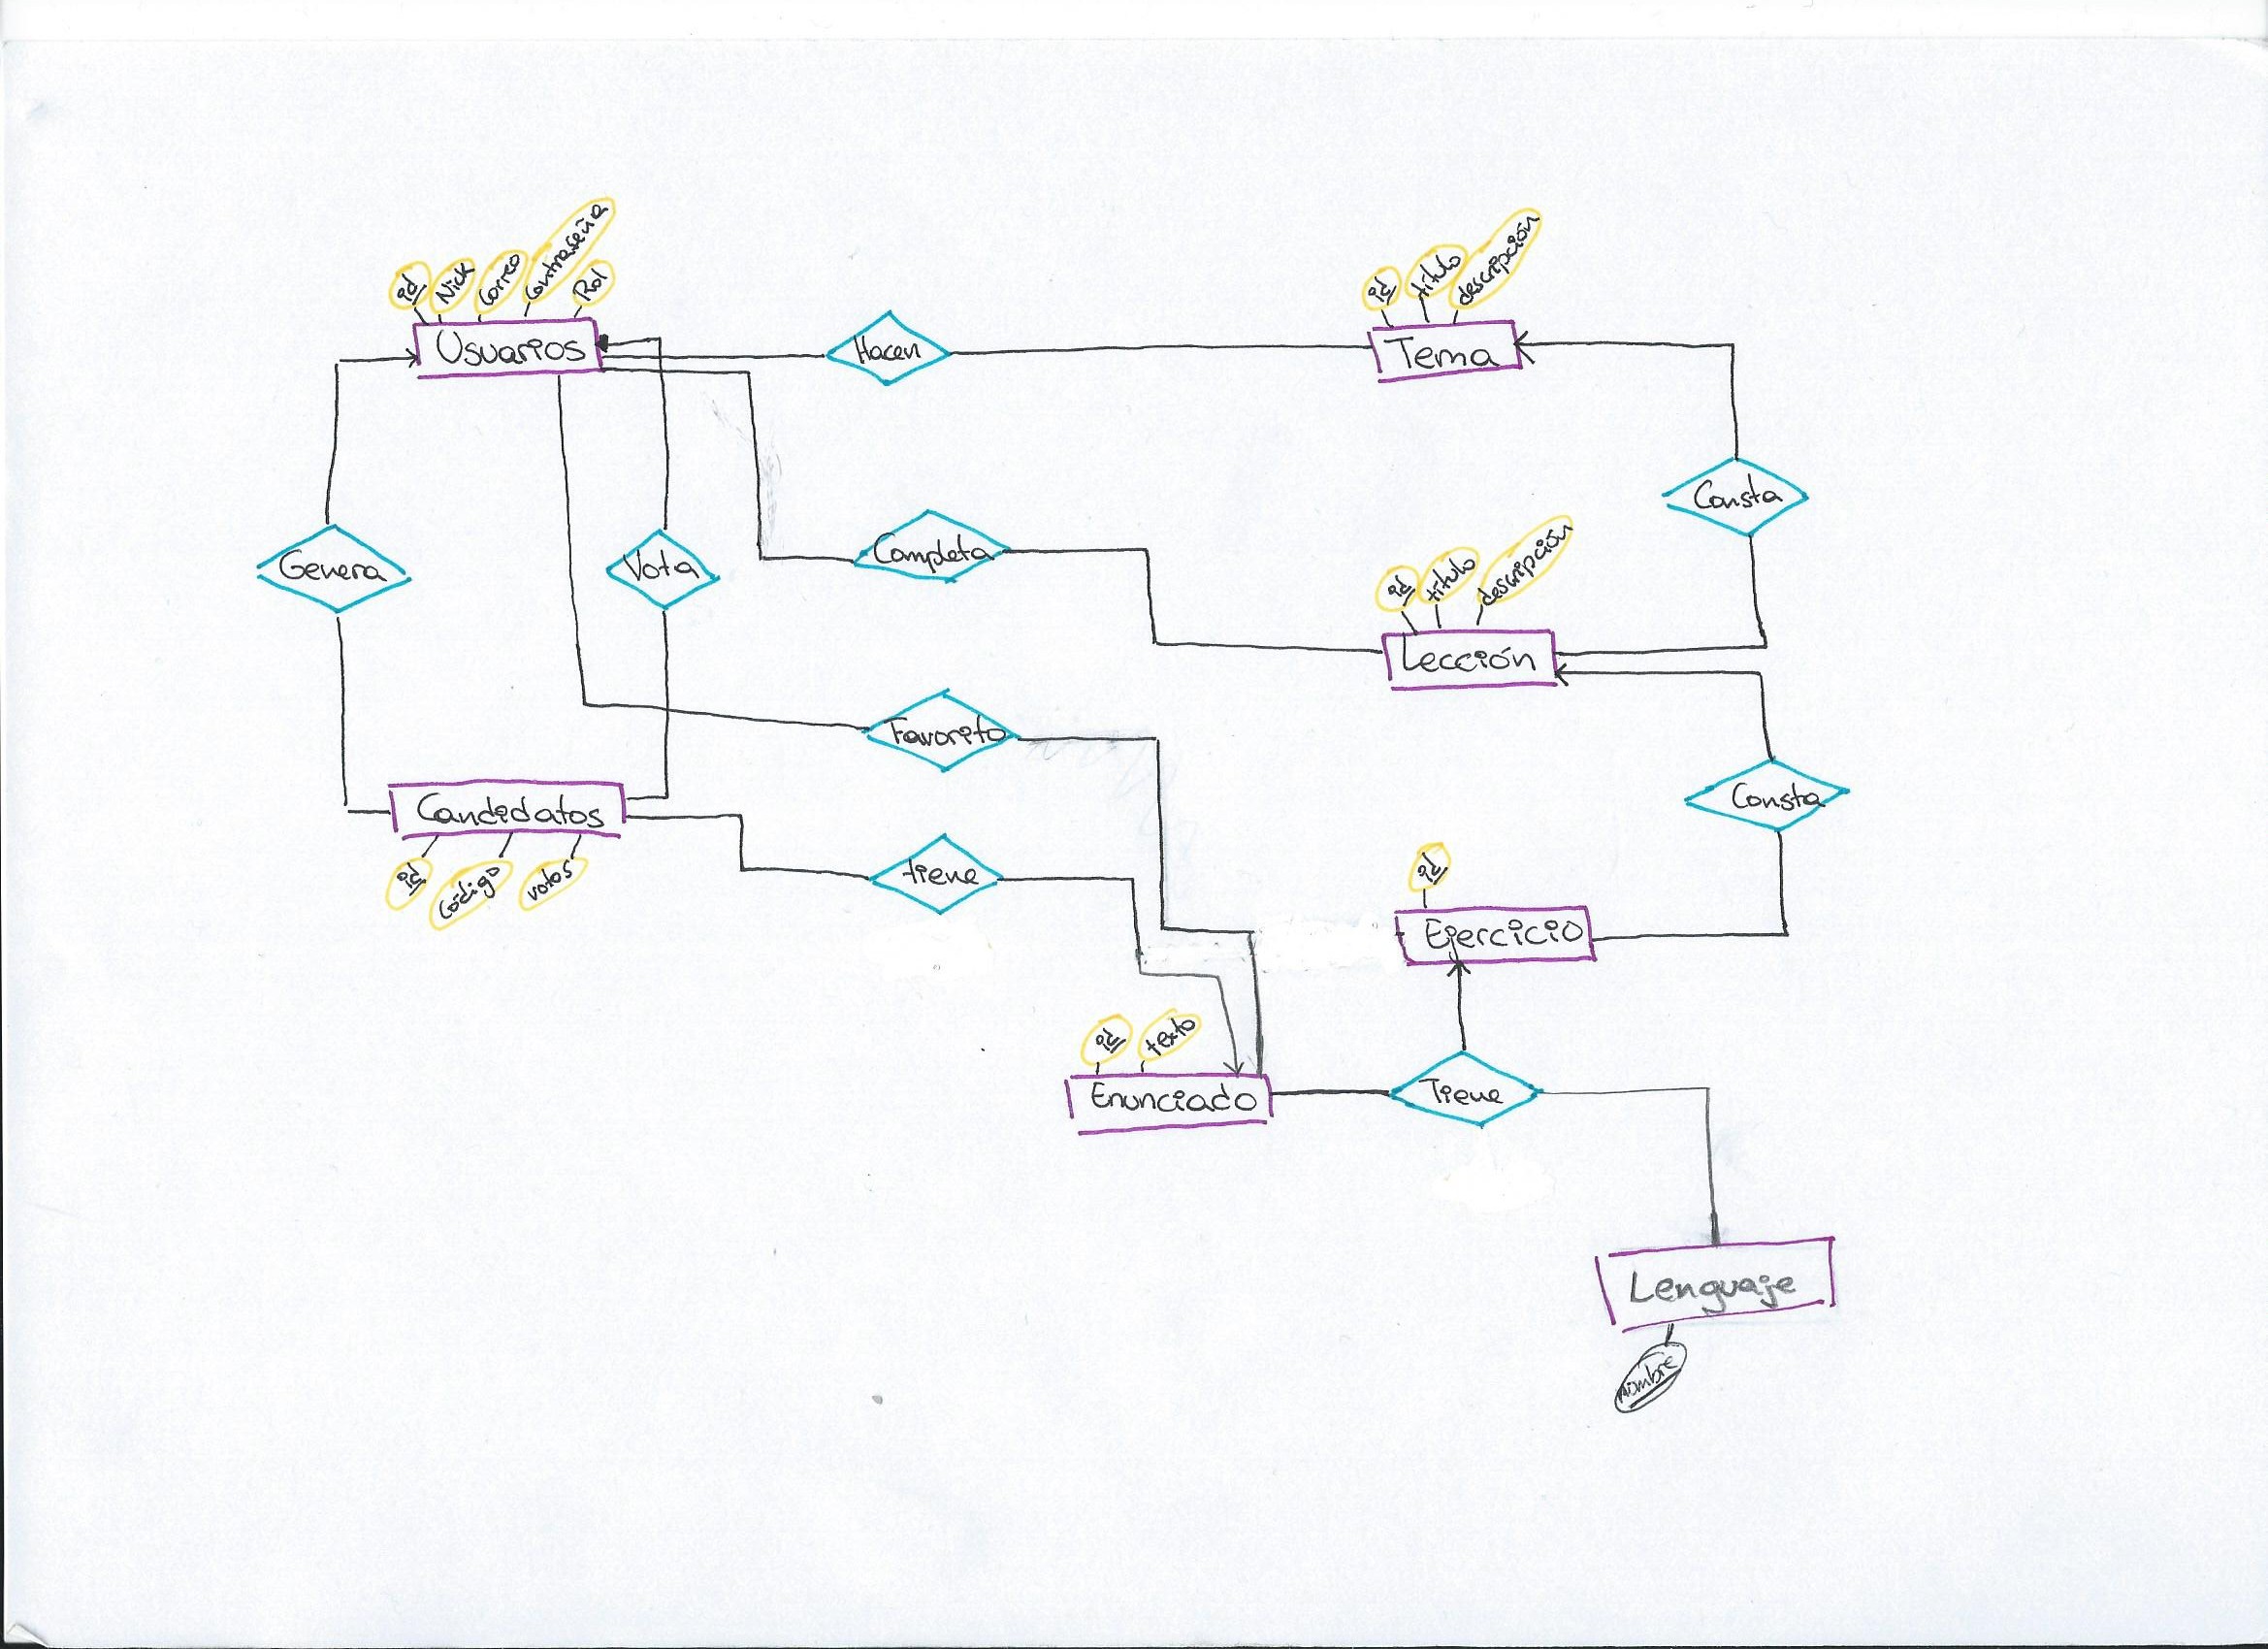 id Nick Correo Contraseña Rol
Usuarios
Hacen
id título descripción
Tema
Consta
Genera
Vota
Completa
id título descripción
Lección
Favorito
Consta
Candidatos
id Código votos
tiene
id
Ejercicio
id texto
Enunciado
Tiene
Lenguaje
nombre